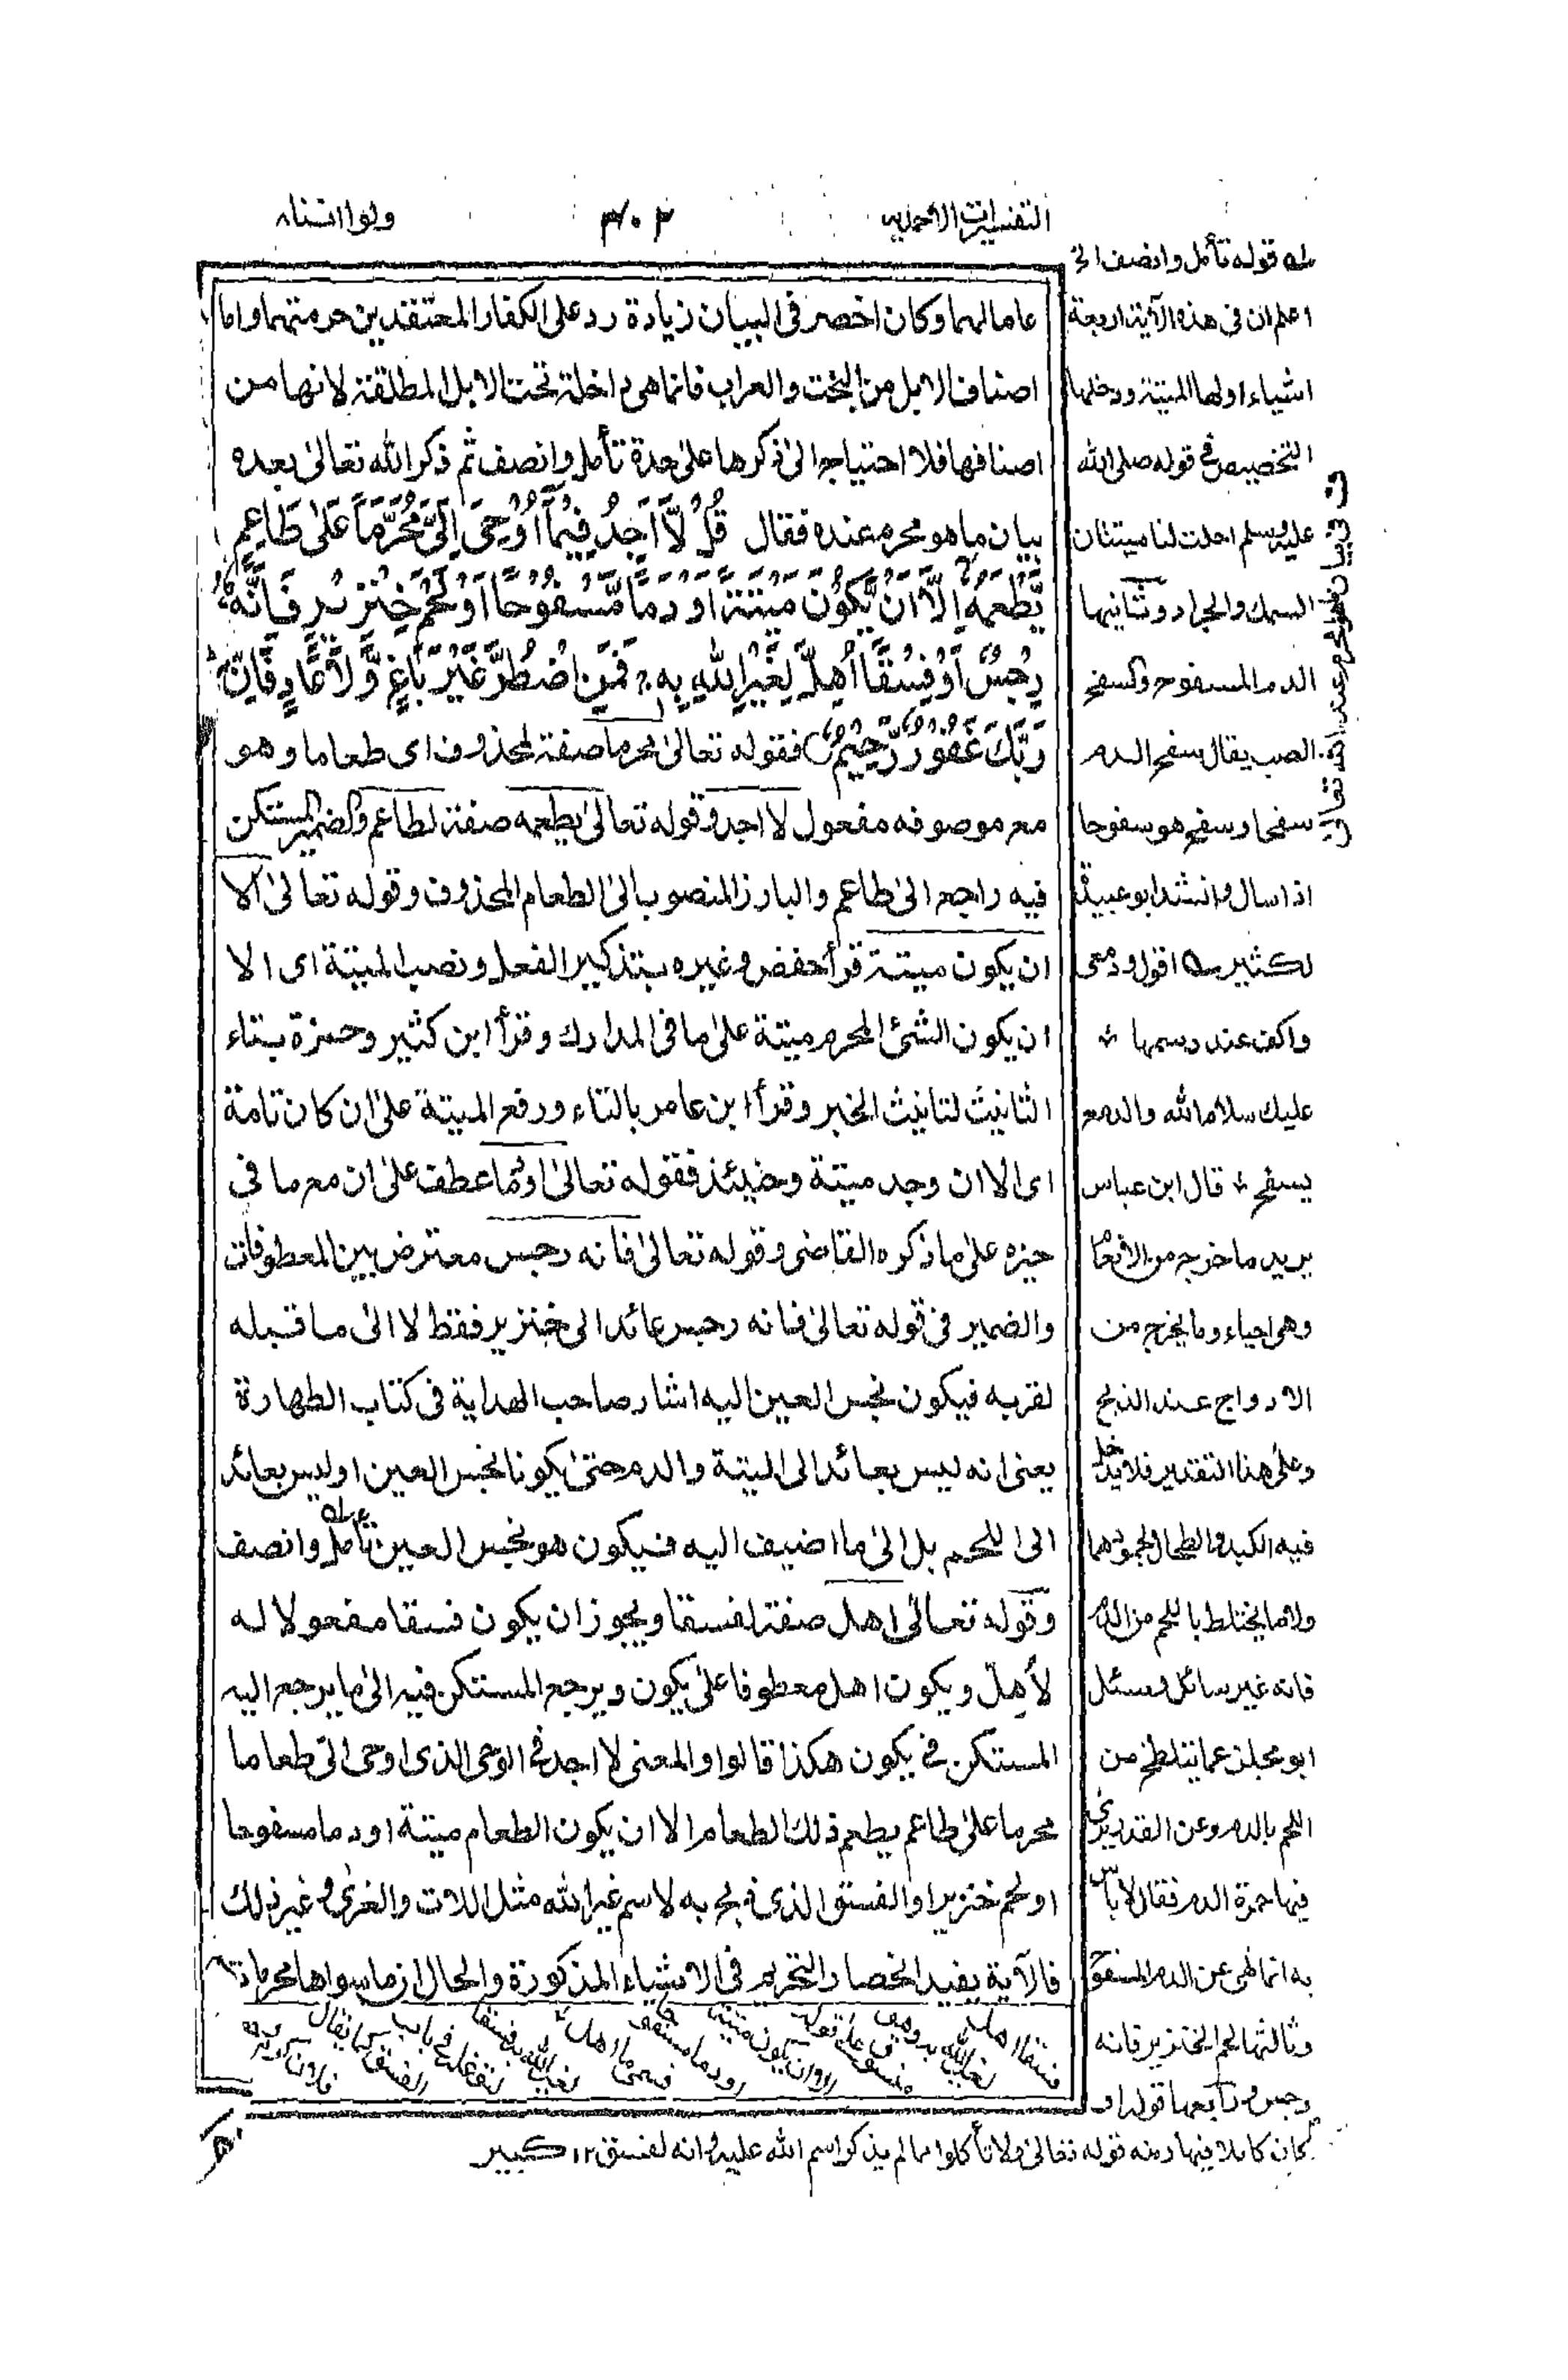 التفسيرات الاحمديه
٤٠٢
ولوا اننا ٨
عاما لهما وكان اخصر فى البيان زيادة رد على الكفار المعتقدين حرمتهما واما
اصناف الابل من البخت والعراب فانما هى داخلة تحت الابل المطلقة لانها من
اصنافها فلا احتياج الى ذكرها على حدة تأمل وانصف ثم ذكر الله تعالى بعده
بيان ما هو محرم عنده فقال قُلْ لَّآ اَجِدُ فِيْمَآ اُوْحِىَ اِلَىَّ مُحَرَّمًا عَلٰى طَاعِمٍ
يَّطْعَمُهٗ اِلَّآ اَنْ يَّكُوْنَ مَيْتَةً اَوْ دَمًا مَّسْفُوْحًا اَوْ لَحْمَ خِنْزِيْرٍ فَاِنَّهٗ
رِجْسٌ اَوْ فِسْقًا اُهِلَّ لِغَيْرِ اللهِ بِهٖ فَمَنِ اضْطُرَّ غَيْرَ بَاغٍ وَّلَا عَادٍ فَاِنَّ
رَبَّكَ غَفُوْرٌ رَّحِيْمٌ فقوله تعالى محرما صفة لمحذوف اى طعاما وهو
مع موصوفه مفعول لا اجد وقوله تعالى يطعمه صفة لطاعم والضمير المستكن
فيه راجع الى طاعم والبارز المنصوب الى الطعام المحذوف وقوله تعالى الا
ان يكون ميتة قرأ حفص وغيره بتذكير الفعل ونصب الميتة اى الا
ان يكون الشئ المحرم ميتة على ما فى المدارك وقرأ ابن كثير وحمزة بتاء
التانيث لتانيث الخبر وقرأ ابن عامر بالتاء ورفع الميتة على ان كان تامة
اى الا ان وجد ميتة وحينئذ فقوله تعالى او دما عطف على ان مع ما فى
حيزه على ما ذكره القاضى وقوله تعالى فانه رجس معترض بين المعطوفات
والضمير فى قوله تعالى فانه رجس عائد الى خنزير فقط لا الى ما قبله
لقربه فيكون نجس العين اليه اشار صاحب الهداية فى كتاب الطهارة
يعنى انه ليس بعائد الى الميتة والدم حتى يكونا نجس العين او ليس بعائد
الى اللحم بل الى ما اضيف اليه فيكون هو نجس العين تأمل وانصف
وقوله تعالى اهل صفة لفسقا ويجوز ان يكون فسقا مفعولا له
لأهلّ ويكون اهل معطوفا على يكون ويرجع المستكن فيه الى ما يرجع اليه
المستكن فى يكون هكذا قالوا والمعنى لا اجد فى الوحى الذى اوحى الىّ طعاما
محرما على طاعم يطعم ذلك الطعام الا ان يكون الطعام ميتة او دما مسفوحا
او لحم خنزير او الفسق الذى ذبح به لاسم غير الله مثل اللات والعزى وغير ذلك
فالآية يفيد انحصار التحريم فى الاشياء المذكورة والحال ان ما سواها محرمات
له قوله تأمل وانصف الخ
اعلم ان فى هذه الآية اربعة
اشياء اولها الميتة ودخلها
التخصيص فى قوله صلى الله
عليه وسلم احلت لنا ميتتان
السمك والجراد وثانيها
الدم المسفوح والسفح
الصب يقال سفح الدم
سفحا وسفح هو سفوحا
اذا سال وانشد ابو عبيدة
لكثير ؎ اقول ودمعى
واكف عند رسمها *
عليك سلام الله والدمع
يسفح * قال ابن عباس
يريد ما خرج من الانعام
وهى احياء وما يخرج من
الاوداج عند الذبح
وعلى هذا التقدير فلا يدخل
فيه الكبد والطحال لجمودهما
ولا ما يختلط باللحم من الدم
فانه غير سائل وسئل
ابو مجلز عما يتلطخ من
اللحم بالدم وعن القدر يرى
فيها حمرة الدم فقال لا بأس
به انما نهى عن الدم المسفوح
وثالثها لحم الخنزير فانه
رجس ورابعها قوله او
فسقا اهل
لغير الله به وهو
منسوق على قوله
الا ان يكون ميتة
او دما مسفوحا
فسمى ما اهل
لغير الله به فسقا
لتوغله فى باب
الفسق كما يقال
فلان كرم
كان كاملا فيها ومنه قوله تعالى ولا تأكلوا مما لم يذكر اسم الله عليه وانه لفسق ١٢ كبير
ف فى بيان ما هو محرم عند الله تعالى